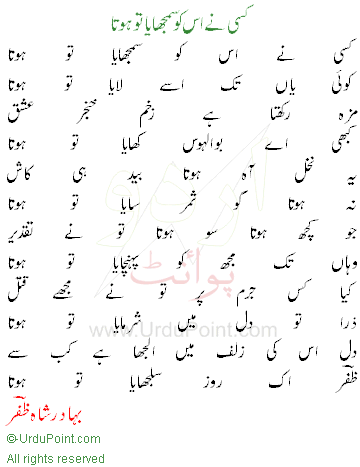 کسی نے اس کو سمجھایا تو ہوتا
کسی نے اس کو سمجھایا تو ہوتا
کوئی یاں تک اسے لایا تو ہوتا
مزہ رکھتا ہے زخم خنجر عشق
کبھی اے بوالہوس کھایا تو ہوتا
یہ نخل آہ ہوتا بید ہی کاش
نہ ہوتا گو ثمر سایا تو ہوتا
جو کچھ ہوتا سو ہوتا تو نے تقدیر
وہاں تک مجھ کو پہنچایا تو ہوتا
کیا کس جرم پر تو نے مجھے قتل
ذرا تو دل میں شرمایا تو ہوتا
دل اس کی زلف میں الجھا ہے کب سے
ظفرؔ اک روز سلجھایا تو ہوتا
بہادر شاہ ظفرؔ
© UrduPoint.com
All rights reserved
اردو
پوائنٹ
www.UrduPoint.com